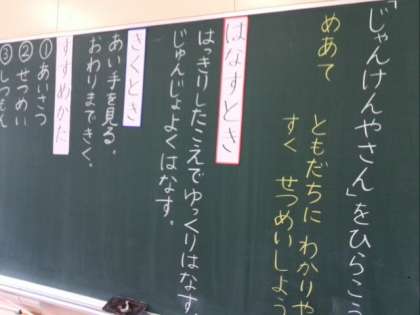 「じゃんけんやさん」をひらこう
めあて ともだちに わかりや
すく せつめいしよう
はなすとき
はっきりしたこえでゆっくりはなす。
じゅんじょよくはなす。
きくとき
あい手を見る。
おわりまできく。
すすめかた
①あいさつ
②せつめい
③しつもん